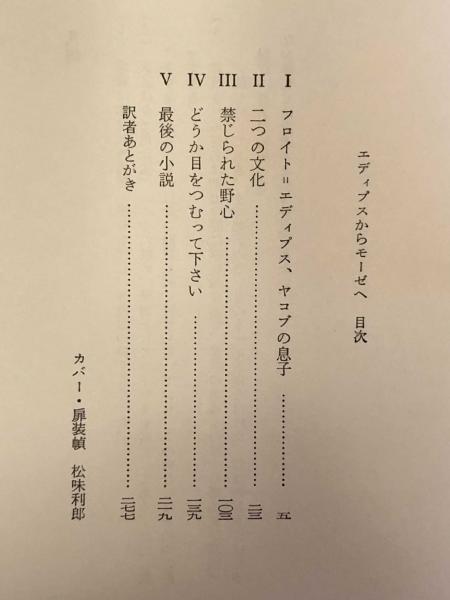 エディプスからモーゼへ 目次
I フロイト=エディプス、ヤコブの息子 …… 五
II 二つの文化 …… 二三
III 禁じられた野心 …… 一〇三
IV どうか目をつむって下さい …… 一三九
V 最後の小説 …… 二一九
訳者あとがき …… 二七七
カバー・扉装幀 松味利郎